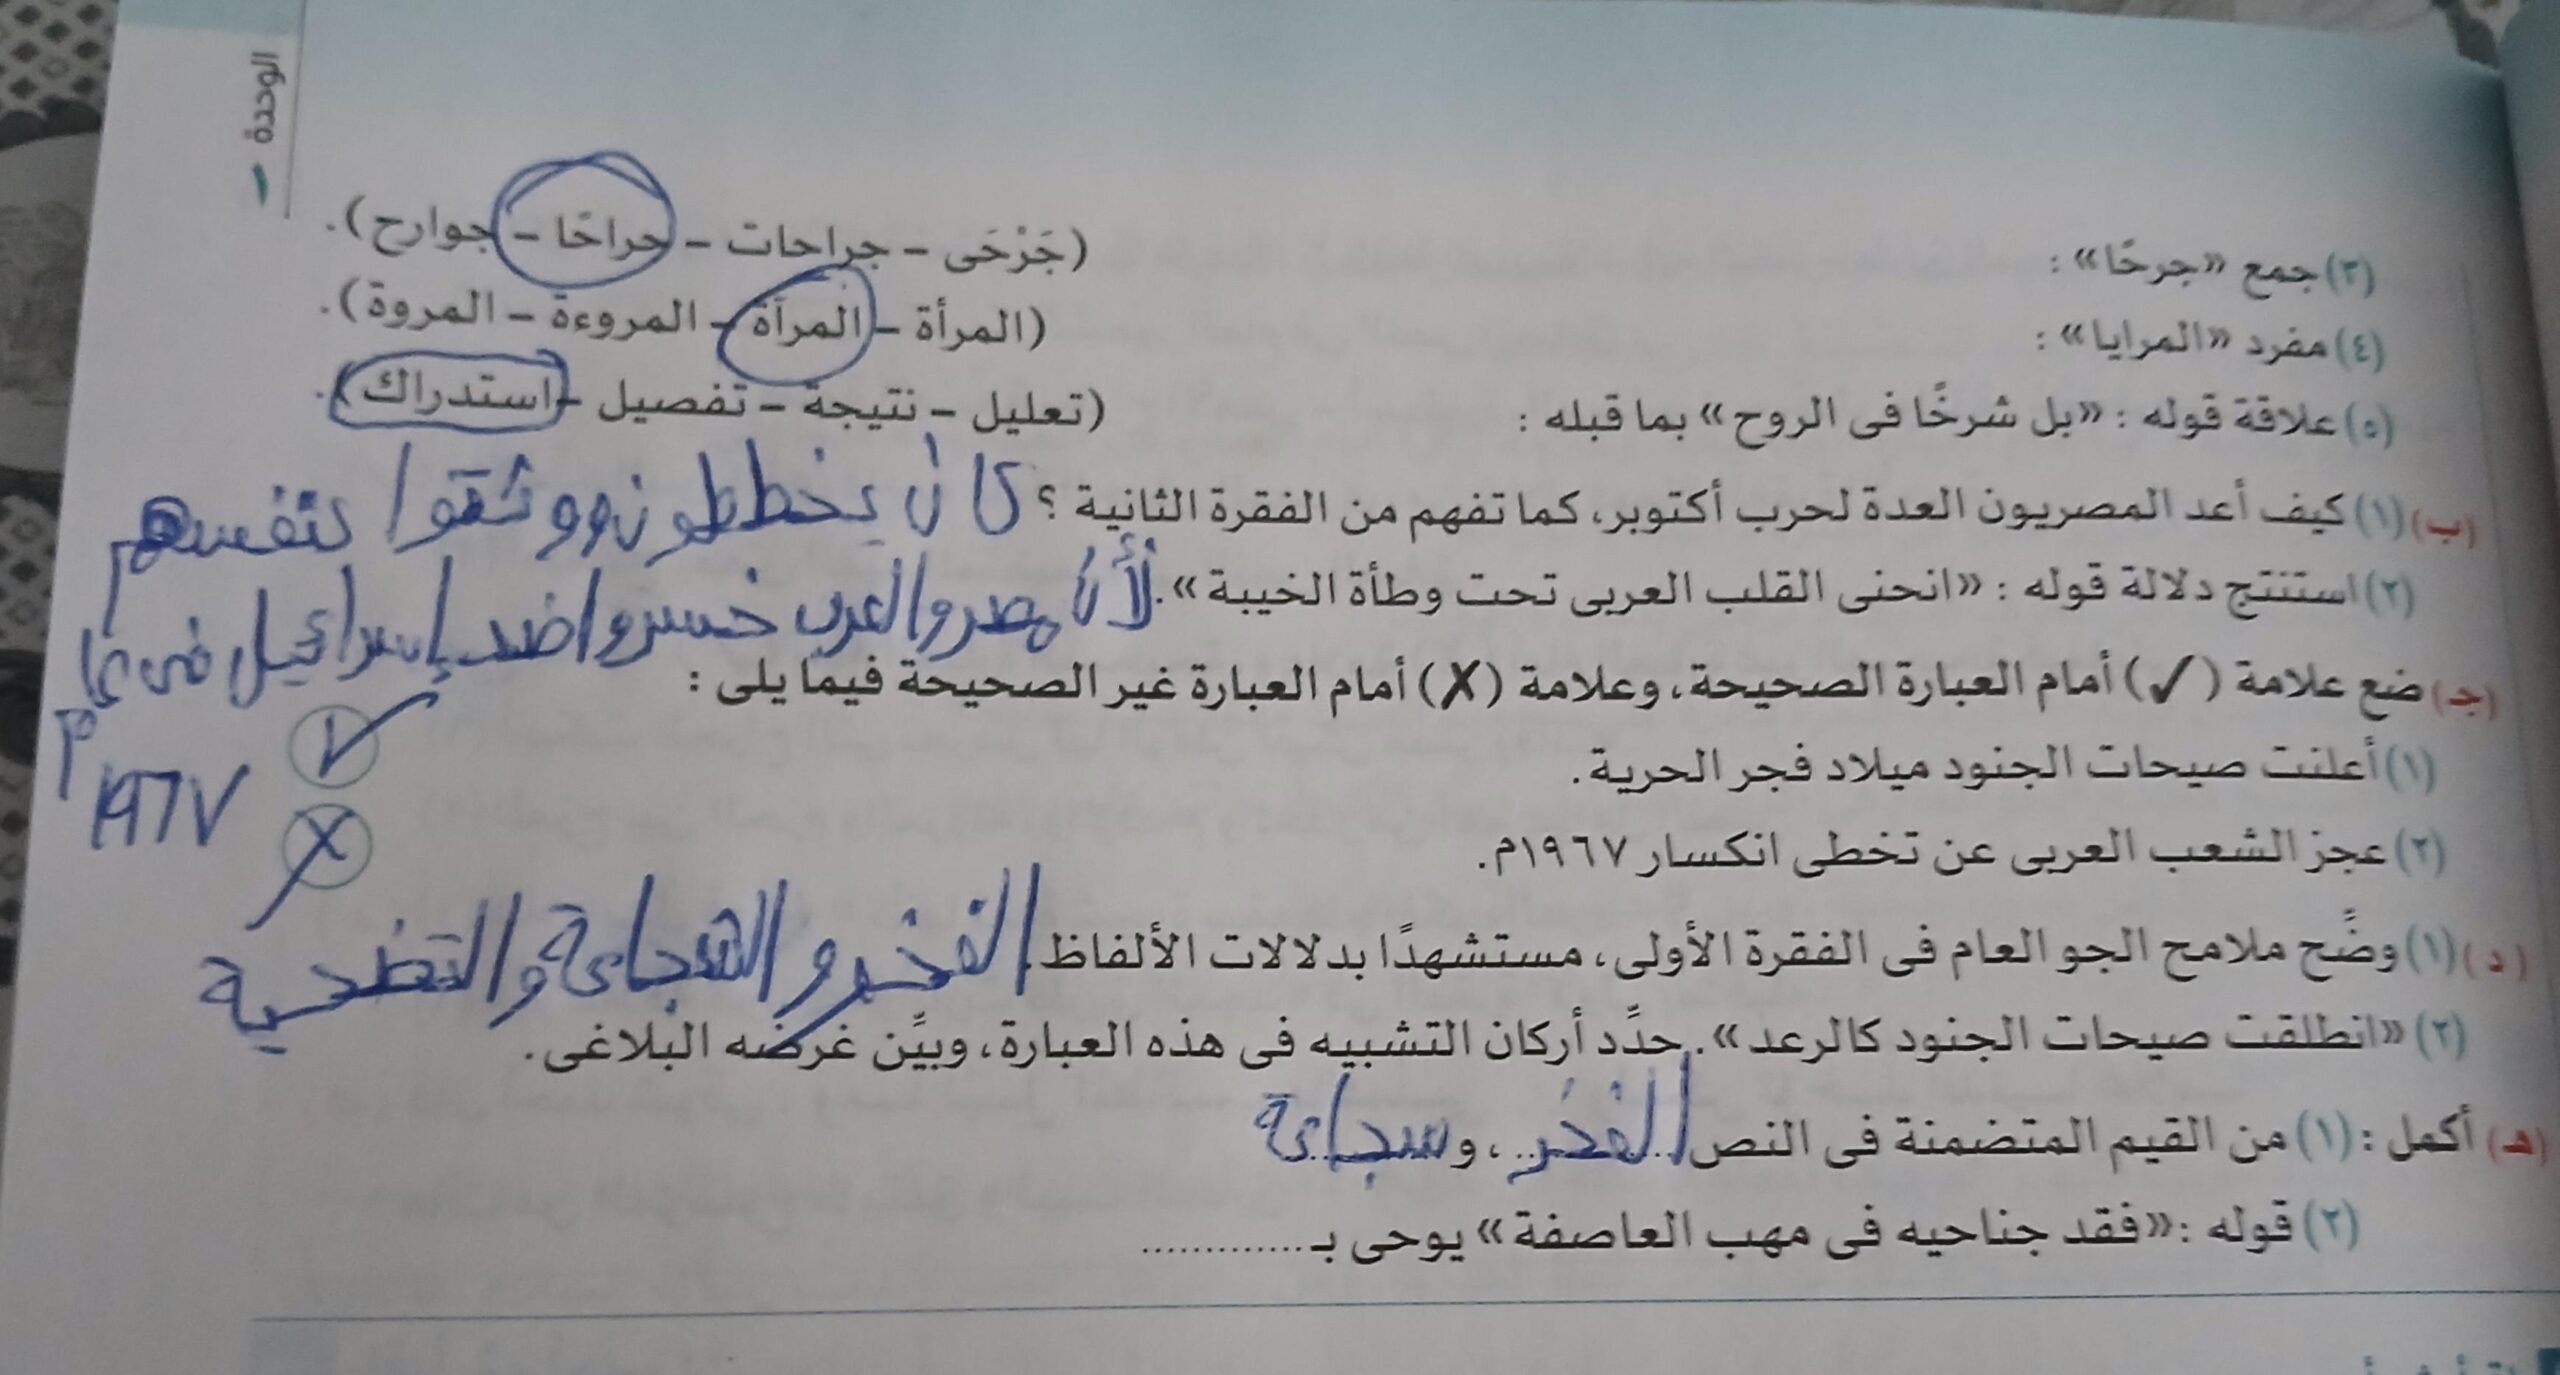 الوحدة ١
(٣) جمع «جرحًا» : (جَرْحَى – جراحات – جراحًا – جوارح).
(٤) مفرد «المرايا» : (المرأة – المرآة – المروءة – المروة).
(٥) علاقة قوله : «بل شرخًا فى الروح» بما قبله : (تعليل – نتيجة – تفصيل – استدراك).
(ب) (١) كيف أعد المصريون العدة لحرب أكتوبر، كما تفهم من الفقرة الثانية ؟ كان يخططون ووثقوا بنفسهم
(٢) استنتج دلالة قوله : «انحنى القلب العربى تحت وطأة الخيبة». لأن مصر والعرب خسروا ضد إسرائيل فى عا
م
(جـ) ضع علامة (✓) أمام العبارة الصحيحة، وعلامة (✗) أمام العبارة غير الصحيحة فيما يلى :
١٩٦٧
(١) أعلنت صيحات الجنود ميلاد فجر الحرية. ✓
(٢) عجز الشعب العربى عن تخطى انكسار ١٩٦٧م. ✗
(د) (١) وضِّح ملامح الجو العام فى الفقرة الأولى، مستشهدًا بدلالات الألفاظ. الفخر والشجاعة والتضحية
(٢) «انطلقت صيحات الجنود كالرعد». حدِّد أركان التشبيه فى هذه العبارة، وبيِّن غرضه البلاغى.
(هـ) أكمل : (١) من القيم المتضمنة فى النص الفخر ، و سجاعة
(٢) قوله : «فقد جناحيه فى مهب العاصفة» يوحى بـ .............